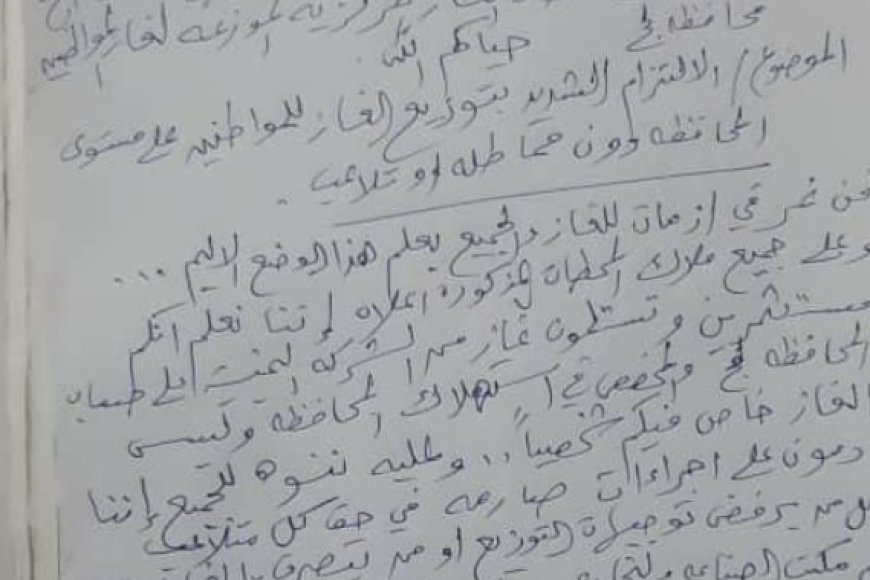 المركزية الموزعة لغاز المواطنين
محافظة لحج
حياكم الله
الموضوع / الالتزام الشديد بتوزيع الغاز للمواطنين على مستوى
المحافظه دون مماطله او تلاعب .
نحن نمر في ازمات للغاز والجميع يعلم هذا الوضع الاليم ...
وعلى جميع ملاك المحطات المذكورة اعلاه إننا نعلم انكم
مستثمرين وتستلمون غاز من الشركه اليمنية على حساب
المحافظه لحج والمخصص في استهلاك المحافظه وليس
الغاز خاص فيكم شخصياً .. وعليه ننوه للجميع إننا
قادمون على اجراءات صارمه في حق كل متلاعب
كل من يرفض توجيهات التوزيع او من يتصرف
مكتب الصناعه